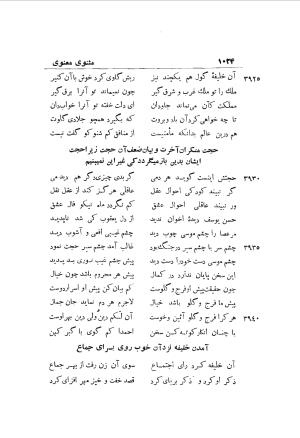 ۱۰۳۴ مثنوی معنوی
۳۹۲۵ آن خلیفهٔ گول هم یکچند نیز ریش گاوی کرد خوش با آن کنیز
ملک را تو ملک غرب و شرق گیر چون نمیماند تو آنرا برق گیر
مملکت کان می‌نماند جاودان ای دلت خفته تو آنرا خواب دان
تا چه خواهی کرد آن باد و بروت که بگیرد همچو جلادی گلوت
هم درین عالم بدانکه مأمنیست از منافق کم شنو کو گفت نیست
حجت منکران آخرت و بیان ضعف آن حجت زیرا حجت
ایشان بدین بازمیگردد کی غیر این نمیبینیم
۳۹۳۰ حجتش اینست گوید هر دمی گر بدی چیزی دگر هم دیدمی
گر نبیند کودکی احوال عقل عاقلی هرگز کند از عقل نقل
ور نبیند عاقلی احوال عشق کم نگردد ماه نیکو فال عشق
حسن یوسف دیدهٔ اخوان ندید از دل یعقوب کی شد ناپدید
مر عصا را چشم موسی چوب دید چشم غیبی افعی و آشوب دید
۳۹۳۵ چشم سر با چشم سر در جنگ بود غالب آمد چشم سر حجت نمود
چشم موسی دست خود را دست دید پیش چشم غیب نوری بد پدید
این سخن پایان ندارد در کمال پیش هر محروم باشد چون خیال
چون حقیقت پیش او فرج و گلوست کم بیان کن پیش او اسرار دوست
پیش ما فرج و گلو باشد خیال لاجرم هر دم نماید جان جمال
۳۹۴۰ هر کرا فرج و گلو آئین و خوست آن لکم دین ولی دین بهر اوست
با چنان انکار کوته کن سخن احمدا کم گوی با گبر کهن
آمدن خلیفه نزد آن خوب روی برای جماع
آن خلیفه کرد رای اجتماع سوی آن زن رفت از بهر جماع
ذکر او کرد و ذکر بر پای کرد قصد خفت و خیز مهر افزای کرد